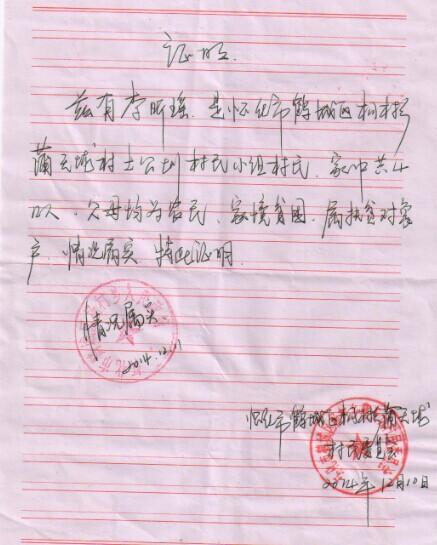 证明
兹有李昕瑶，是怀化市鹤城区桐木
蒲天球村土公刘村民小组村民，家中共4
口人，父母均为农民，家境贫困，属扶贫对象
户，情况属实，特此证明。
情况属实
2014.12.11
怀化市鹤城区 蒲天球
村民委员会
2014年12月10日